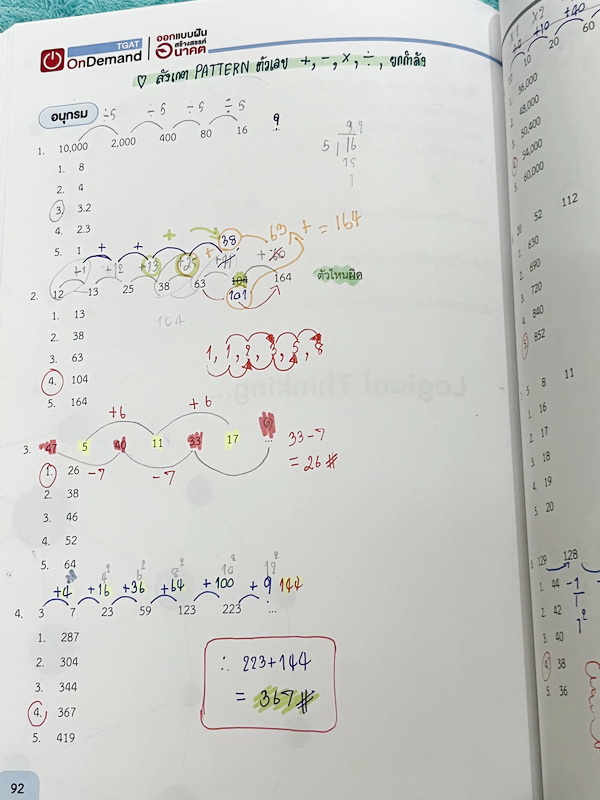 TGAT
OnDemand
ออกแบบฝัน
สร้างสรรค์
อนาคต
♡ สังเกต PATTERN ตัวเลข +, −, ×, ÷, ยกกำลัง
อนุกรม
÷5 ÷5 ÷5 ÷5
1. 10,000 2,000 400 80 16 ...
1. 8
2. 4
3. 3.2
4. 2.3
5. 1
5 16
+ + + 38 63 + = 164
+1 +12 +13 +25
2. 12 13 25 38 63 104 164 ตัวไหนผิด
101
104
1. 13
2. 38
3. 63
4. 104
5. 164
1, 1, 2, 3, 5, 8
+6 +6
3. 47 5 40 11 33 17 ...
-7 -7
33-7
= 26 #
1. 26
2. 38
3. 46
4. 52
5. 64
2² 4² 6² 8² 10² 12²
+4 +16 +36 +64 +100 + 144
4. 3 7 23 59 123 223 ...
1. 287
2. 304
3. 344
4. 367
5. 419
∴ 223+144
= 367 #
92
×1 ×2
+10 +40
10 20 60
1. 36,000
2. 48,000
3. 50,400
4. 54,000
5. 60,000
20 52 112
1. 630
2. 690
3. 720
4. 840
5. 852
5 8 11
1. 16
2. 17
3. 18
4. 19
5. 20
129 128
1. 44
2. 42
3. 40
4. 38
5. 36
-1
1²